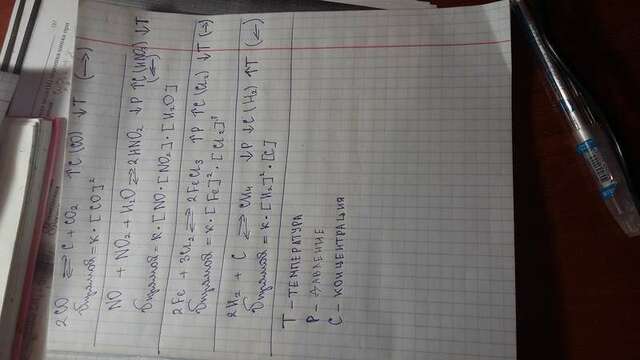 2CO ⇄ C + CO₂ ↑C(CO) ↓T (→)
υпрямая = к·[CO]²
NO + NO₂ + H₂O ⇄ 2HNO₂ ↓P ↑C(HNO₂) ↓T
(←)
υпрямая = к·[NO·[NO₂]·[H₂O]
2Fe + 3Cl₂ ⇄ 2FeCl₃ ↑P ↑C(Cl₂) ↓T (→)
υпрямая = к·[Fe]²·[Cl₂]³
2H₂ + C ⇄ CH₄ ↓P ↓C(H₂) ↑T (←)
υпрямая = к·[H₂]²·[C]
T – ТЕМПЕРАТУРА
P – ДАВЛЕНИЕ
C – КОНЦЕНТРАЦИЯ